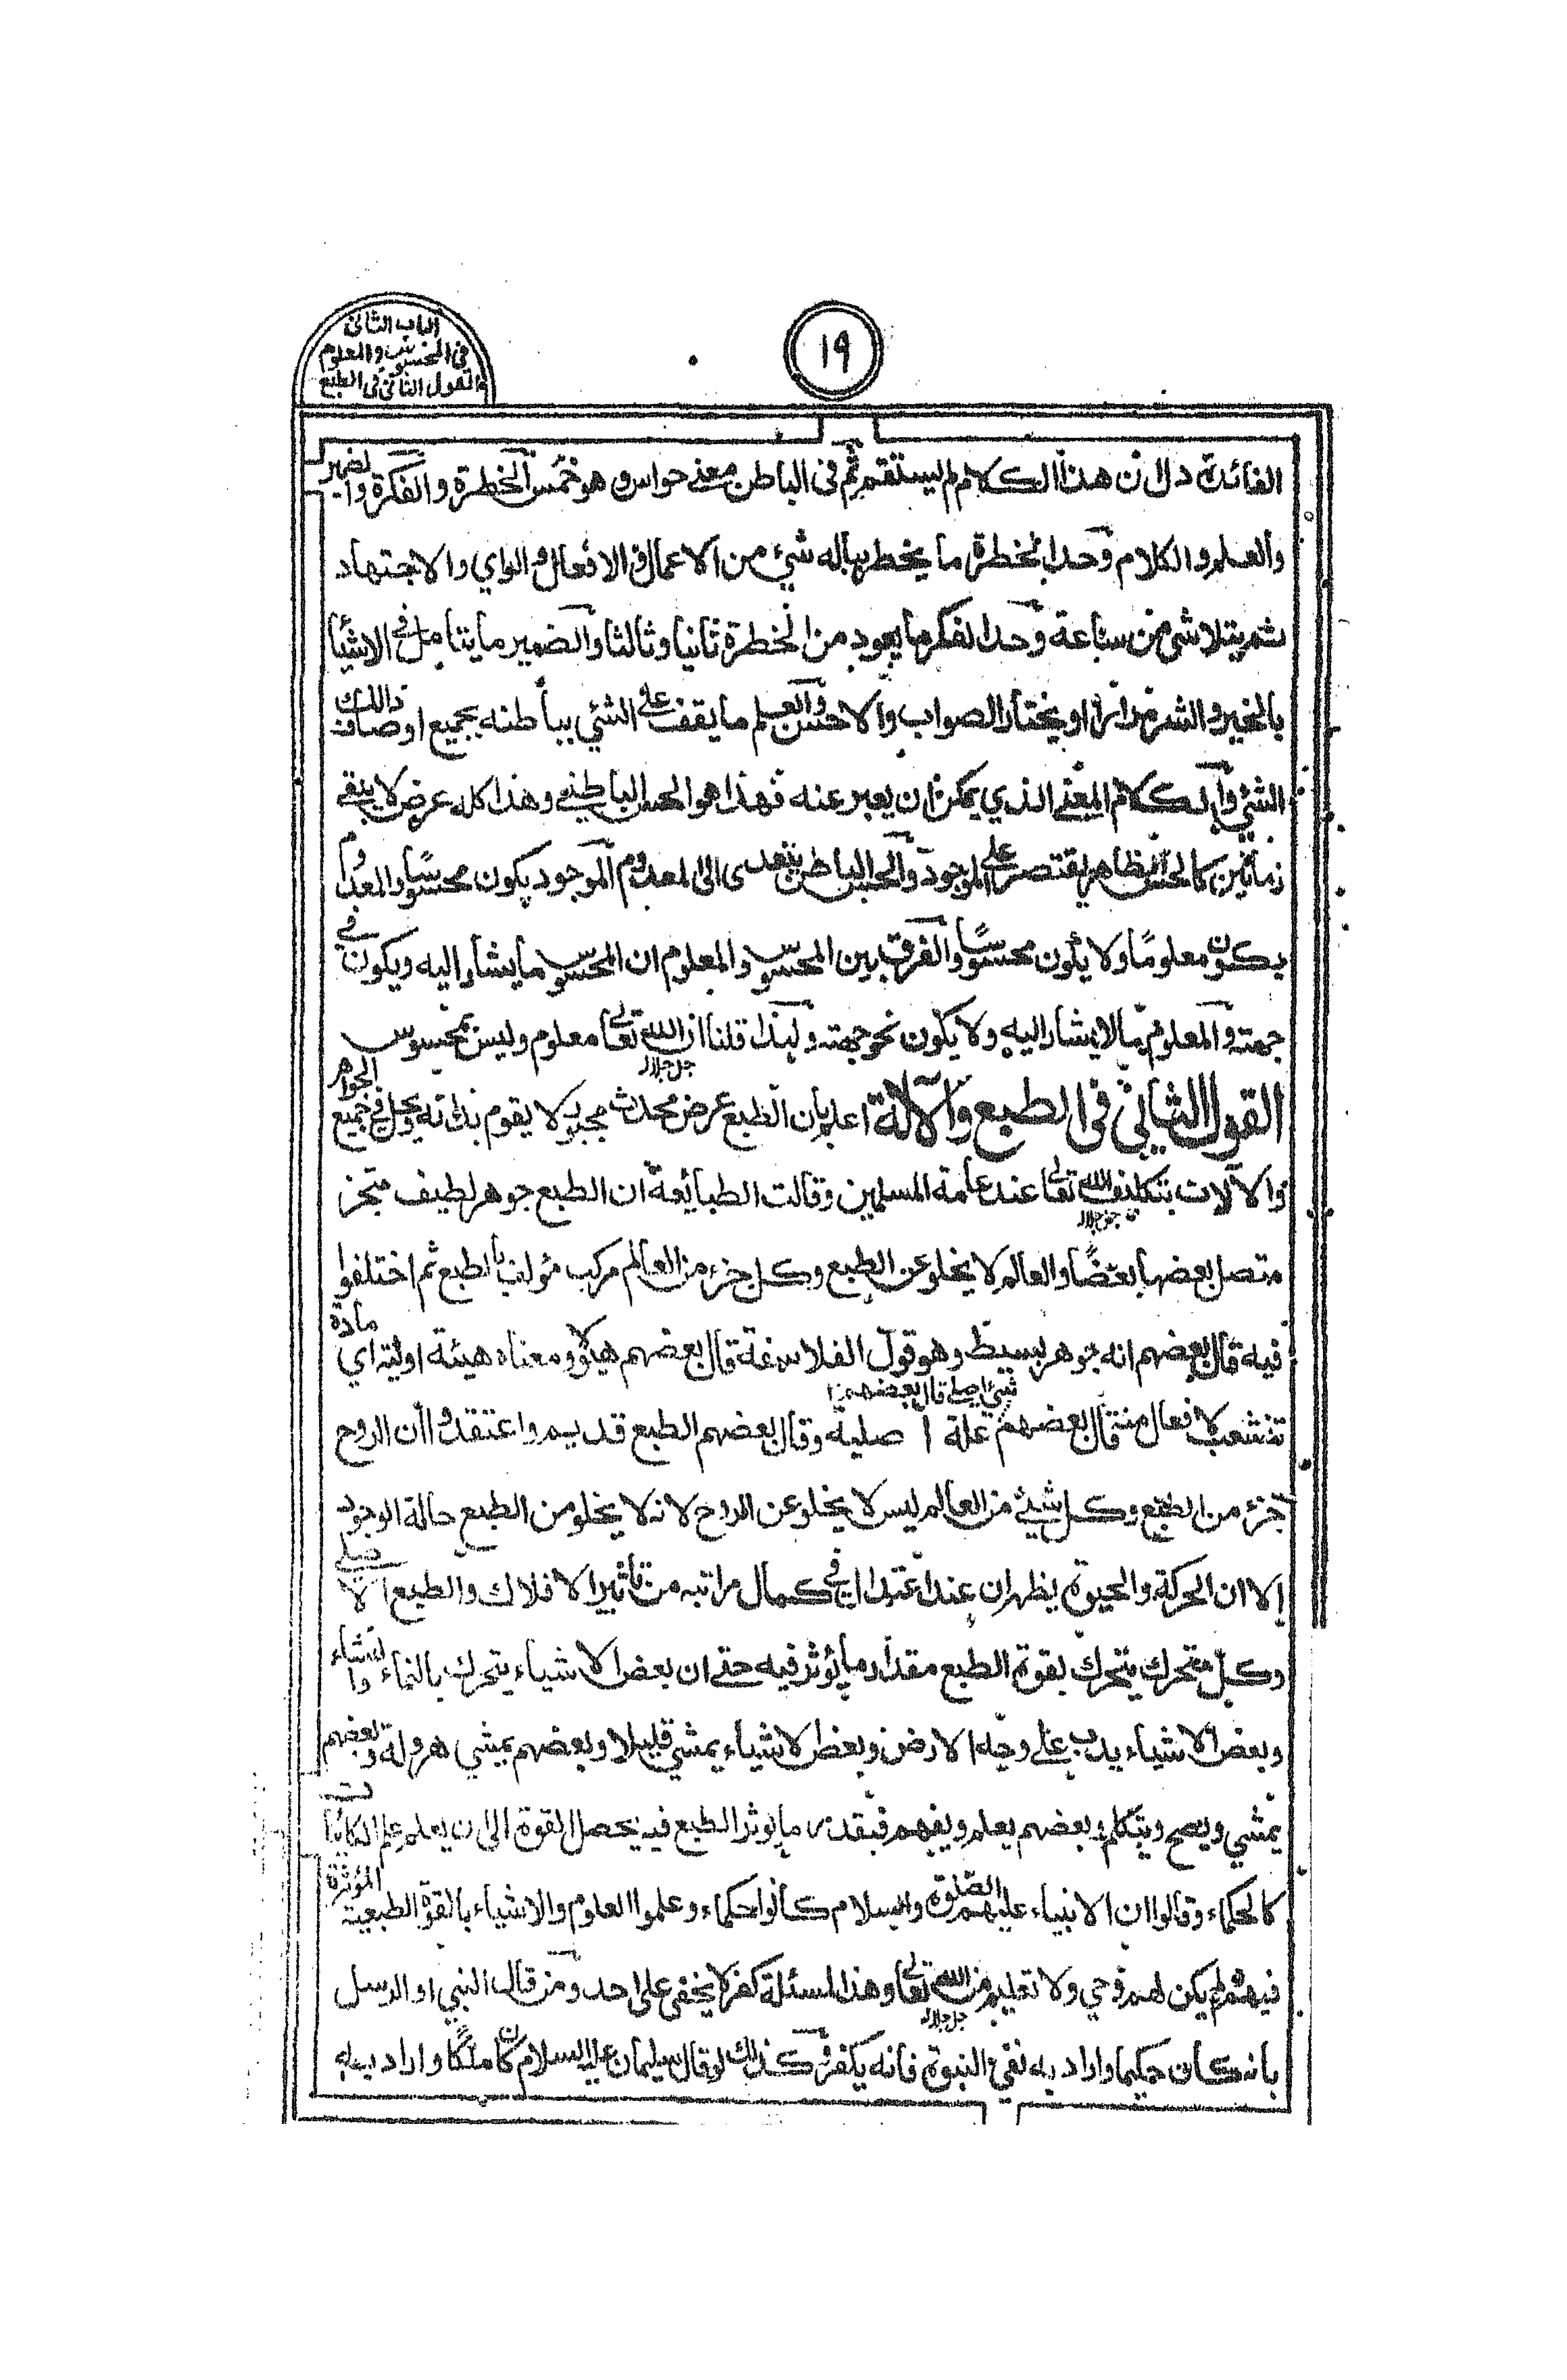 الباب الثانى
فى المحسوس والمعلوم
القول الثانى فى الطبع
١٩
الفائدة دل ان هذا الكلام لم يستقم ثم فى الباطن معنى حواس و هو خمس الخطرة والفكرة والضمير
والعلم والكلام وحد الخطرة ما يخطر بباله شيء من الاعمال والافعال والراي والاجتهاد
ثم يتلاشى من ساعة وحد الفكر ما يعود من الخطرة ثانيا وثالثا والضمير ما يتأمل فى الاشياء
بالخير والشر او يختار الصواب والاحسن والعلم ما يقف على الشئي بباطنه بجميع اوصاف ذالك
الشئي والكلام المعنى الذي يمكن ان يعبر عنه فهذا هو الحس الباطنى وهذا كله عرض لا يبقى
زمانين كالحس الظاهر يقتصر على الموجود والحس الباطن يتعدى الى المعدوم الموجود يكون محسوسًا والمعدوم
يكون معلومًا ولا يكون محسوسًا والفرق بين المحسوس والمعلوم ان المحسوس ما يشار اليه ويكون فى
جهته والمعلوم ما لا يشار اليه ولا يكون نحو جهته ولهذا قلنا ان الله تعالى جل جلاله معلوم وليس بمحسوس
القول الثانى فى الطبع والآلة اعلم بان الطبع عرض محدث مجبر لا يقوم بذاته ويحل فى جميع الجواهر
والآلات بتكليف الله تعالى جل جلاله عند عامة المسلمين وقالت الطبائعة ان الطبع جوهر لطيف متجز
متصل بعضها بعضًا والعالم لا يخلو عن الطبع وكل جزء من العالم مركب مؤلف بالطبع ثم اختلفوا
فيه قال بعضهم انه جوهر بسيط وهو قول الفلاسفة قال بعضهم هيولا ومعناه هيئة اولية اي مادة
تنشعب الافعال منه قال بعضهم شئ اصلى قال بعضهم علة اصلية وقال بعضهم الطبع قديم واعتقدوا ان الروح
جزء من الطبع وكل شيئ من العالم ليس لا يخلو عن الروح لانه لا يخلو من الطبع حالة الوجود
الا ان الحركة والحيوة يظهران عند اعتداله فى كمال مراتبه من تأثير الافلاك والطبع الاصلى
وكل متحرك يتحرك بقوة الطبع مقدار ما يؤثر فيه حتى ان بعض الاشياء يتحرك بالنماء والنشاء
وبعض الاشياء يدب على وجه الارض وبعض الاشياء يمشي قليلا وبعضهم يمشي هرولة وبعضهم
يمشي ويصح ويتكلم وبعضهم يعلم ويفهم فبقدر ما يوثر الطبع فيه يحصل القوة الى ان يعلم علم الكائنات
كالحكماء وقالوا ان الانبياء عليهم الصلوة والسلام كانوا حكماء وعلموا العلوم والاشياء بالقوة الطبعية المؤثرة
فيهم ثم لم يكن لهم وحي ولا تعليم من الله تعالى جل جلاله وهذا المسئلة كفر لا يخفى على احد ومن قال النبي او الرسل
بانه كان حكيما واراد به نفى النبوة فانه يكفر وكذلك لو قال سليمان عليه السلام كان ملكًا واراد به